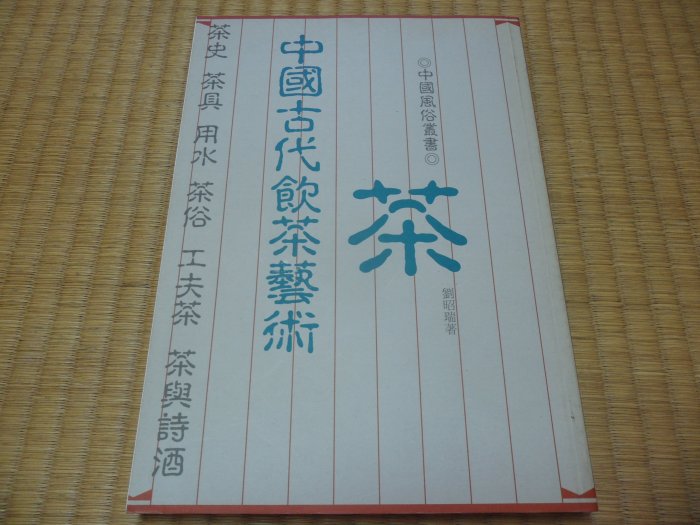 ◎中國風俗叢書◎
茶
劉昭瑞著
中國古代飲茶藝術
茶史 茶具 用水 茶俗 工夫茶 茶與詩酒